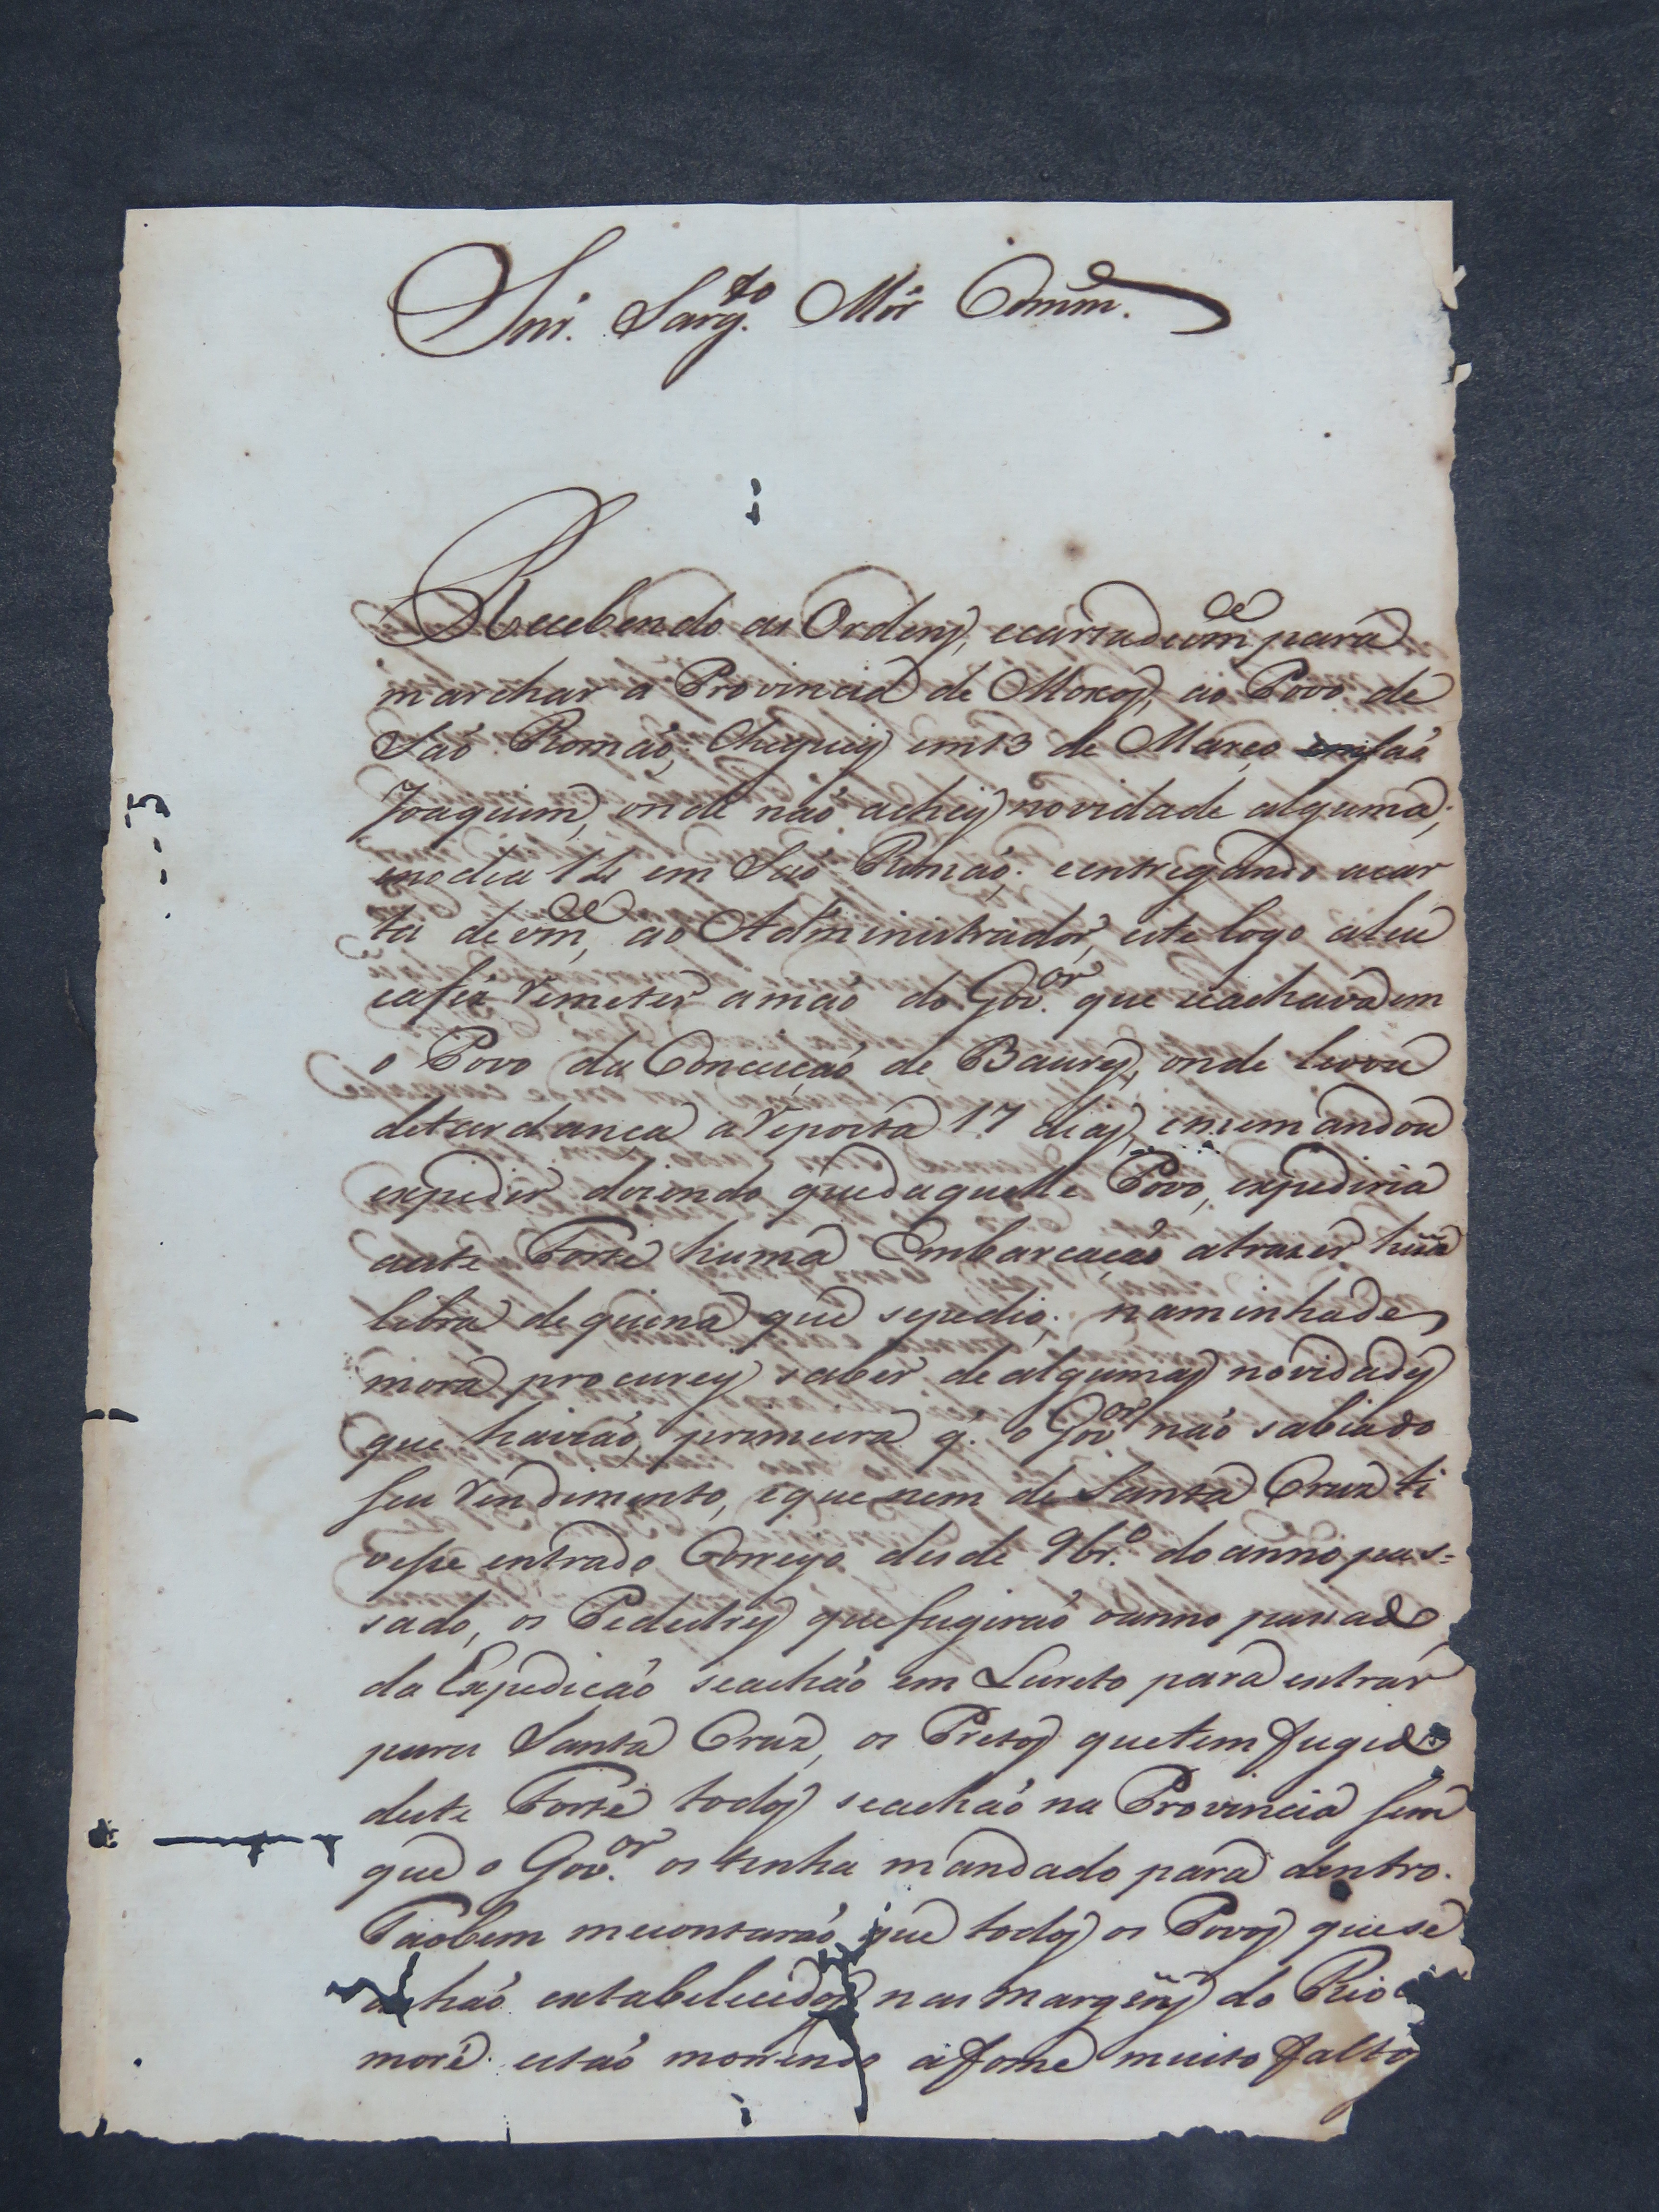 Snr. Sarg.to Mór Comm.e
Recebendo as Ordens, e carta de vm.ce para
marchar a Provincia de Moxos, ao Povo de
Saõ Romaõ; Cheguey em 13 de Março em Saõ
Joaquim, onde naõ achey novidade alguma;
e no dia 14 em Saõ Romaõ; e entregando a car
ta de vm.ce, ao Administrador, este logo a leu
e a fez remeter a maõ do Gov.or que se achava em
o Povo da Conceiçaõ de Baures, onde levou
de tardança a reposta 17 dias, e me mandou
expedir dizendo que daquelle Povo, expediria
a este Forte huma Embarcaçaõ a trazer huã
libra de quina que se pedio; na minha de
mora procurey saber de algumas novidades
que haviaõ, primeira q. o Gov.or naõ sabia do
seu rendimento, e que nem de Santa Cruz ti
vesse entrado Correyo desde 9br.o do anno pas=
sado, os Pedestres que fugiraõ o anno passado
da Expediçaõ se achaõ em Lureto para entrar
para Santa Cruz, os Pretos que tem fugido
deste Forte todos se achaõ na Provincia sem
que o Gov.or os tenha mandado para dentro.
Taobem me contaraõ que todos os Povos que se
achaõ estabelecidos nas margens do Rio
moré estaõ morrendo á fome muito faltos